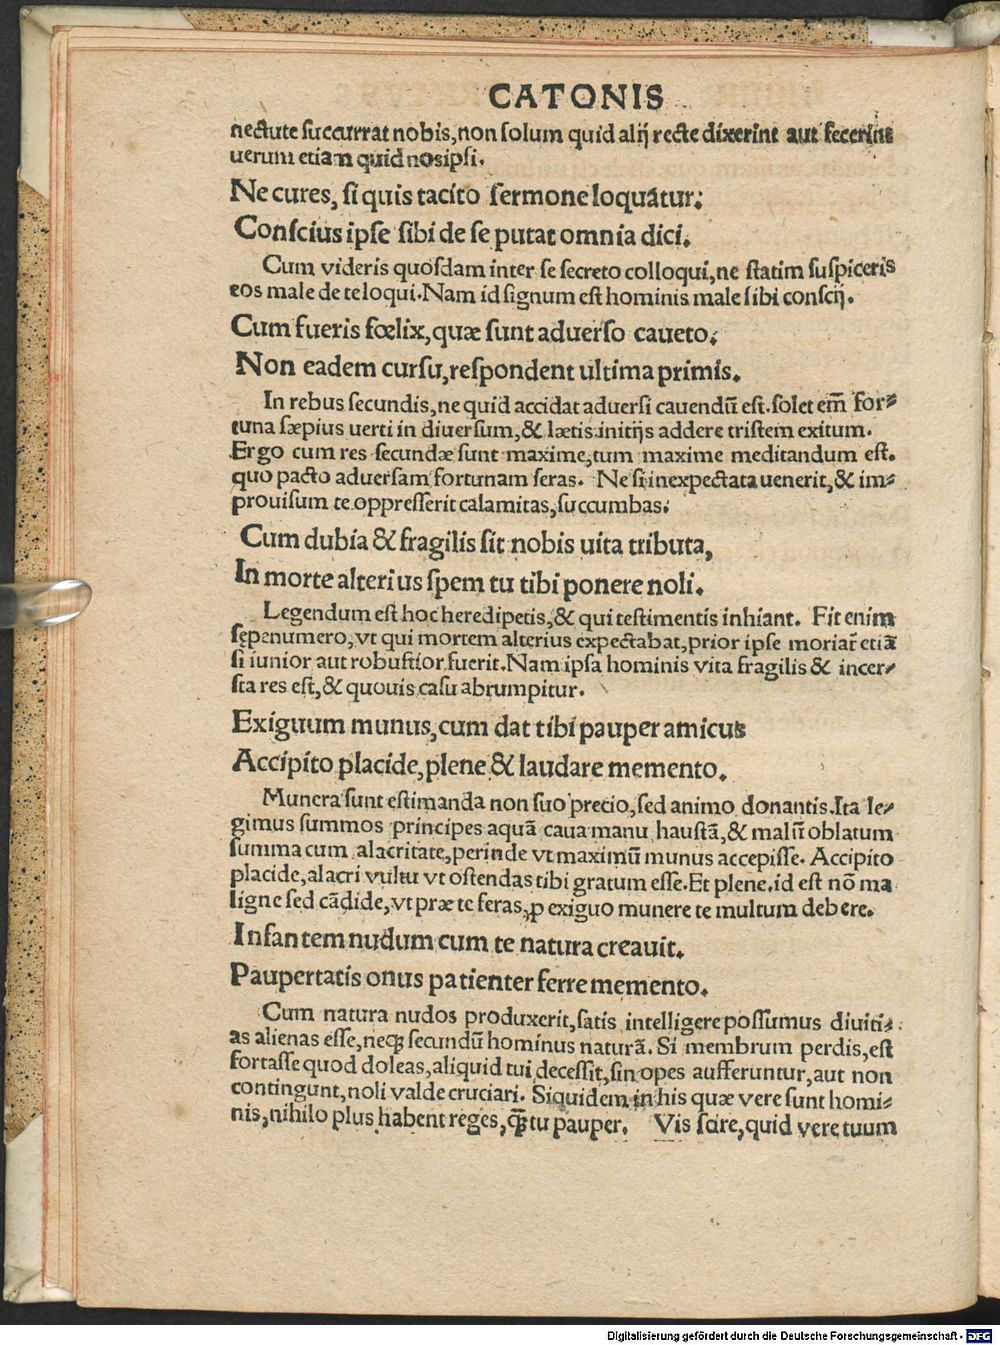 CATONIS
nectute succurrat nobis, non solum quid alij recte dixerint aut fecerint
uerum etiam quid nosipsi.
Ne cures, si quis tacito sermone loquatur:
Conscius ipse sibi de se putat omnia dici.
Cum videris quosdam inter se secreto colloqui, ne statim suspiceris
eos male de te loqui. Nam id signum est hominis male sibi conscij.
Cum fueris fœlix, quæ sunt aduerso caueto:
Non eadem cursu, respondent ultima primis.
In rebus secundis, ne quid accidat aduersi cauendū est. solet em̄ for⸗
tuna sæpius uerti in diuersum, & lætis initijs addere tristem exitum.
Ergo cum res secundæ sunt maxime, tum maxime meditandum est.
quo pacto aduersam fortunam feras. Ne si inexpectata uenerit, & im⸗
prouisum te oppresserit calamitas, succumbas.
Cum dubia & fragilis sit nobis uita tributa,
In morte alterius spem tu tibi ponere noli.
Legendum est hoc heredipetis, & qui testimentis inhiant. Fit enim
sępenumero, vt qui mortem alterius expectabat, prior ipse moriat̄ etiā
si iunior aut robustior fuerit. Nam ipsa hominis vita fragilis & incer⸗
sta res est, & quouis casu abrumpitur.
Exiguum munus, cum dat tibi pauper amicus
Accipito placide, plene & laudare memento.
Munera sunt estimanda non suo precio, sed animo donantis. Ita le⸗
gimus summos principes aquā caua manu haustā, & malū oblatum
summa cum alacritate, perinde vt maximū munus accepisse. Accipito
placide, alacri vultu vt ostendas tibi gratum esse. Et plene. id est nō ma
ligne sed cādide, vt præ te feras, ꝓ exiguo munere te multum debere.
Infantem nudum cum te natura creauit.
Paupertatis onus patienter ferre memento.
Cum natura nudos produxerit, satis intelligere possumus diuiti⸗
as alienas esse, neqꝫ secundū hominus naturā. Si membrum perdis, est
fortasse quod doleas, aliquid tui decessit, sin opes aufferuntur, aut non
contingunt, noli valde cruciari. Siquidem in his quæ vere sunt homi⸗
nis, nihilo plus habent reges, q̄ꝫ tu pauper. Vis scire, quid vere tuum
Digitalisierung gefördert durch die Deutsche Forschungsgemeinschaft - DFG